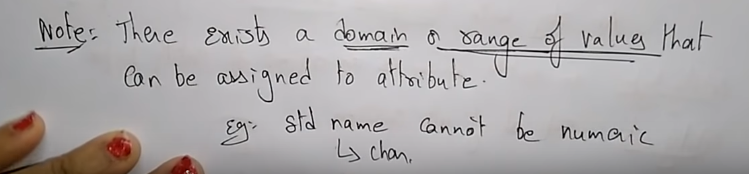 Note:- There exists a domain or range of values that
can be assigned to attribute.
Eg:- Std name cannot be numeric
↳ char.